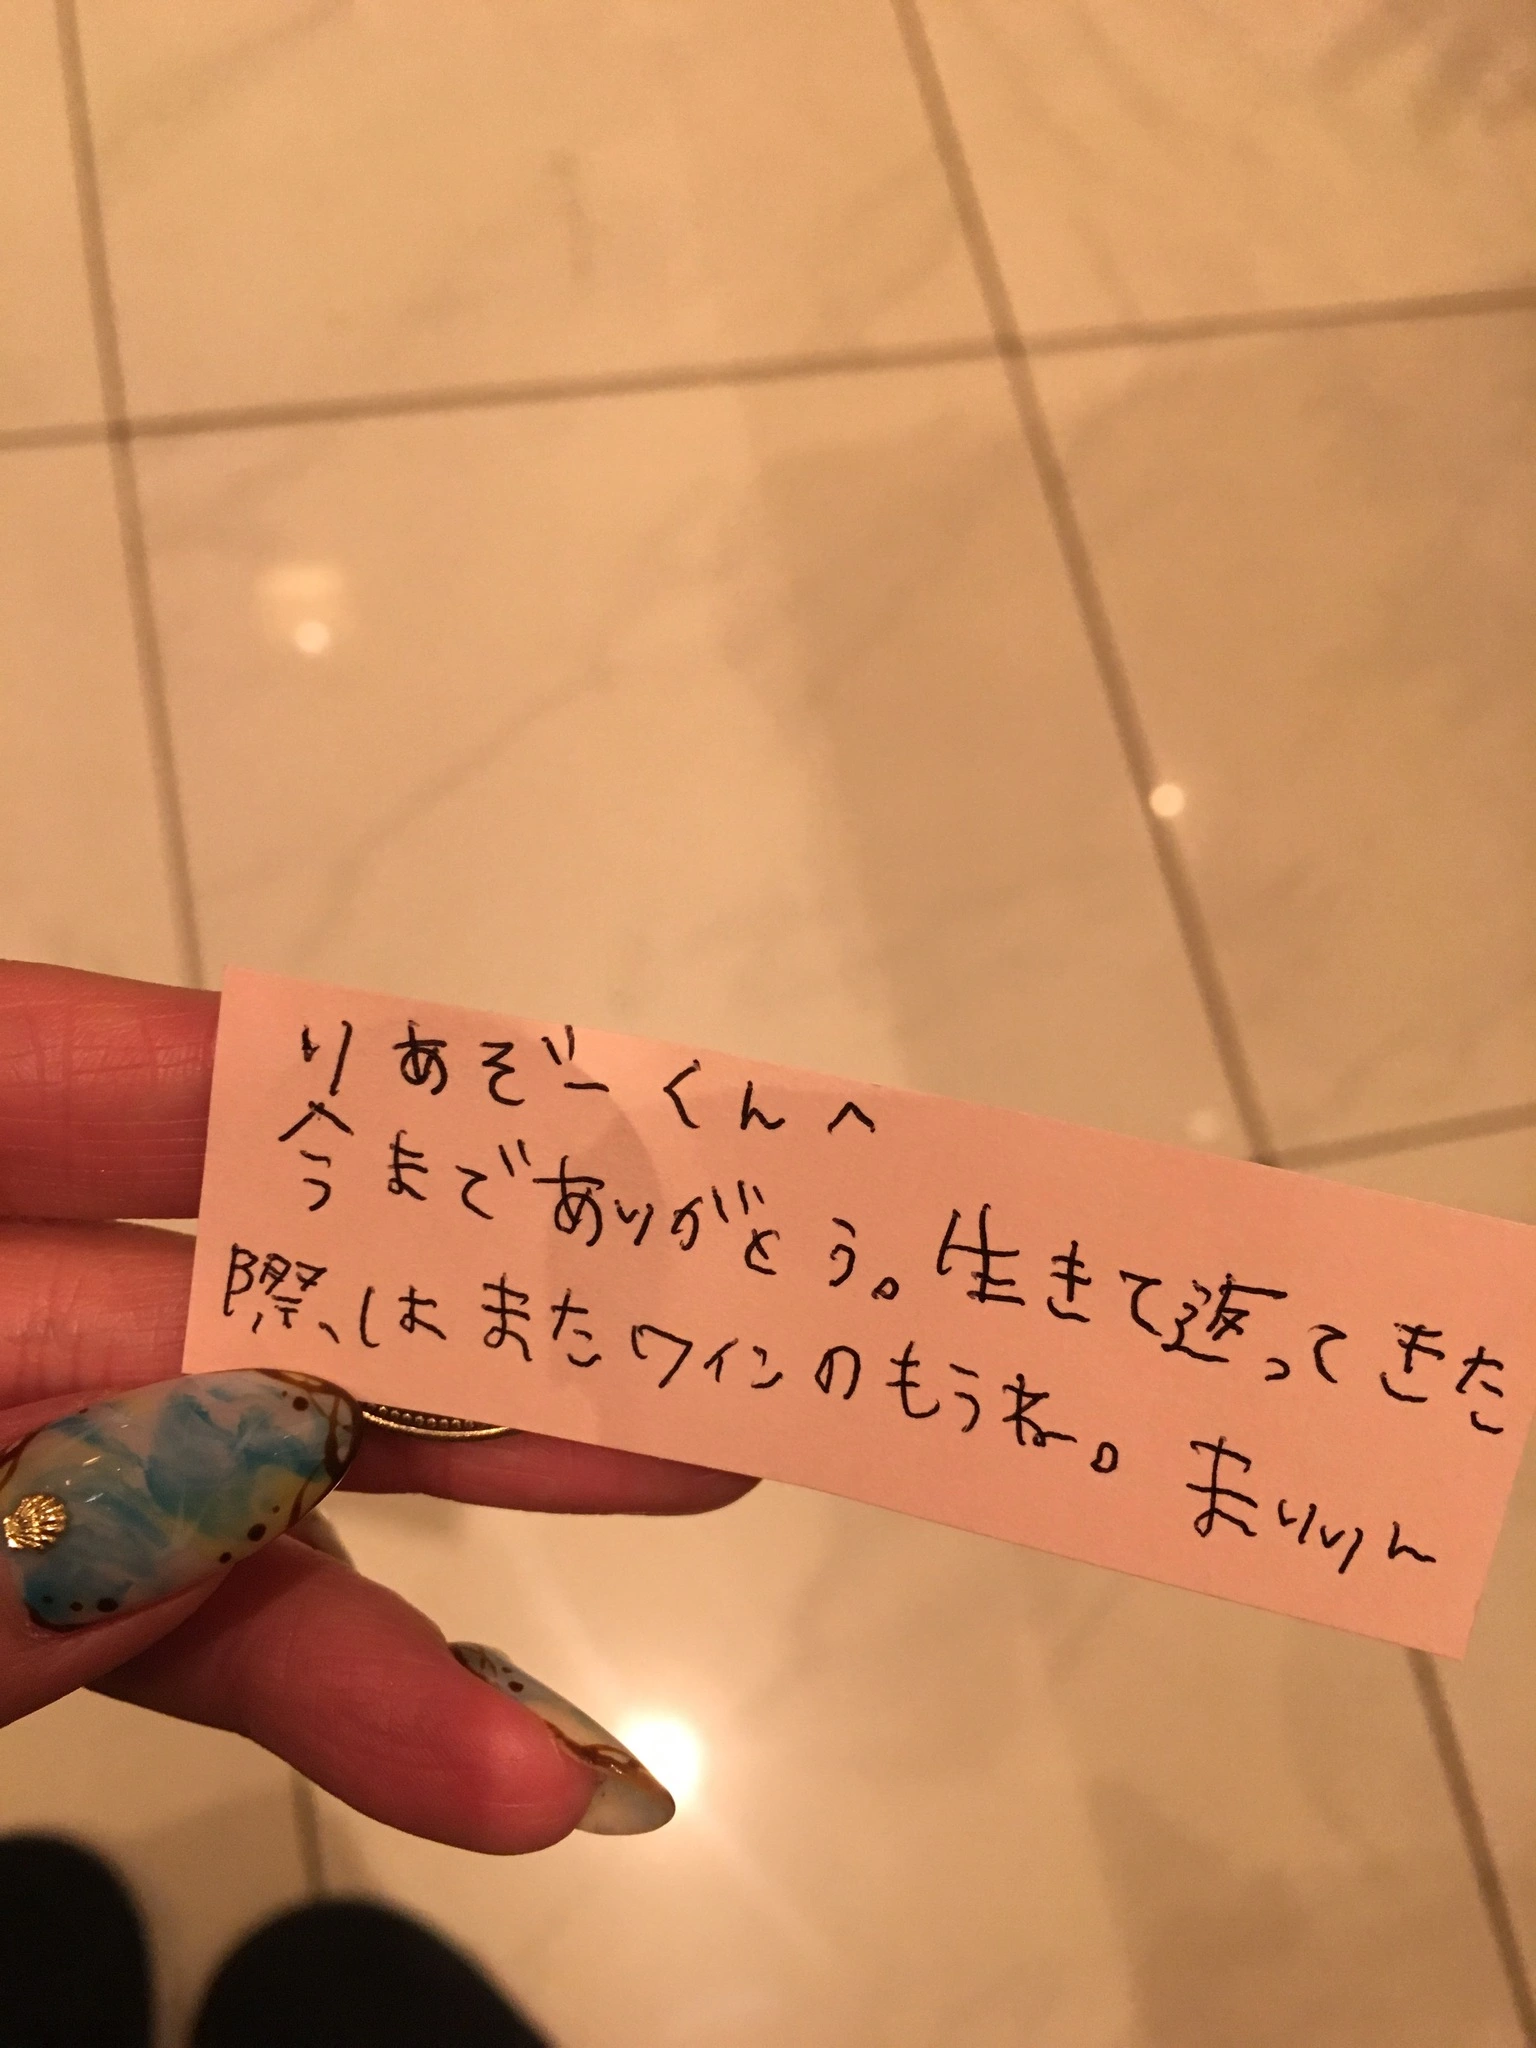 りあぞーくんへ
今までありがとう。生きて返ってきた
際、はまたワインのもうね。まりりん